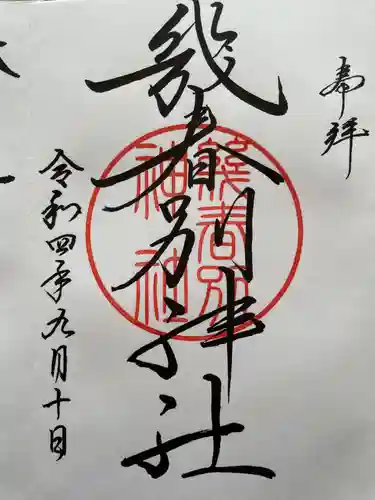 奉拝
幾春別神社
幾春別
神社
令和四年九月十日